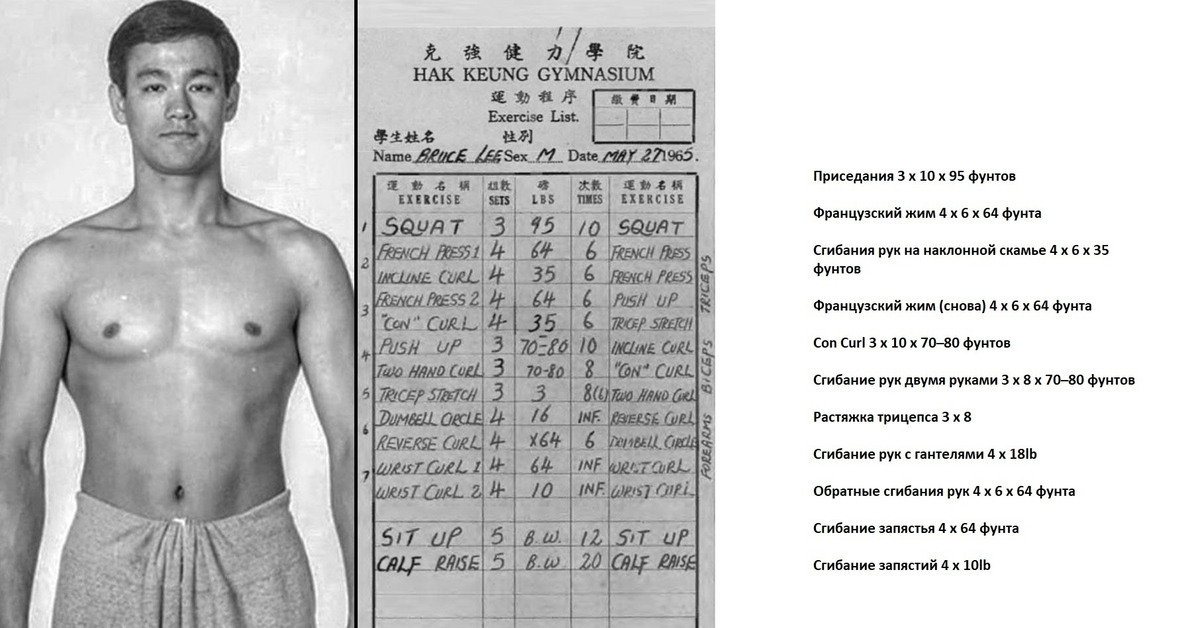 克強健力學院
HAK KEUNG GYMNASIUM
運動程序
Exercise List.
繳費日期
學生姓名 性別
Name BRUCE LEE Sex M Date MAY 27 1965.
運動名稱 組數 磅 次數 運動名稱
EXERCISE SETS LBS TIMES EXERCISE
1 SQUAT 3 95 10 SQUAT
FRENCH PRESS 1 4 64 6 FRENCH PRESS
2 INCLINE CURL 4 35 6 FRENCH PRESS
FRENCH PRESS 2 4 64 6 PUSH UP
3 "CON" CURL 4 35 6 TRICEP STRETCH
PUSH UP 3 70-80 10 INCLINE CURL
4 TWO HAND CURL 3 70-80 8 "CON" CURL
5 TRICEP STRETCH 3 3 8(6) TWO HAND CURL
DUMBELL CIRCLE 4 16 INF. REVERSE CURL
6 REVERSE CURL 4 X64 6 DUMBELL CIRCLE
WRIST CURL 1 4 64 INF WRIST CURL
7 WRIST CURL 2 4 10 INF. WRIST CURL
SIT UP 5 B.W. 12 SIT UP
CALF RAISE 5 B.W 20 CALF RAISE
TRICEPS
BICEPS
FOREARMS
Приседания 3 x 10 x 95 фунтов
Французский жим 4 x 6 x 64 фунта
Сгибания рук на наклонной скамье 4 x 6 x 35
фунтов
Французский жим (снова) 4 x 6 x 64 фунта
Con Curl 3 x 10 x 70–80 фунтов
Сгибание рук двумя руками 3 x 8 x 70–80 фунтов
Растяжка трицепса 3 x 8
Сгибание рук с гантелями 4 x 18lb
Обратные сгибания рук 4 x 6 x 64 фунта
Сгибание запястья 4 x 64 фунта
Сгибание запястий 4 x 10lb